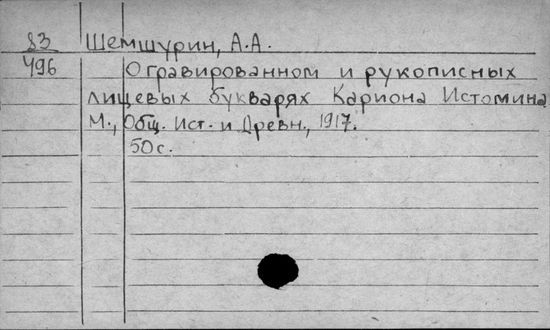 83 Шемшурин, А.А.
496 О гравированном и рукописных
лицевых букварях Кариона Истомина
М., Общ. Ист. и Древн., 1917.
50 с.